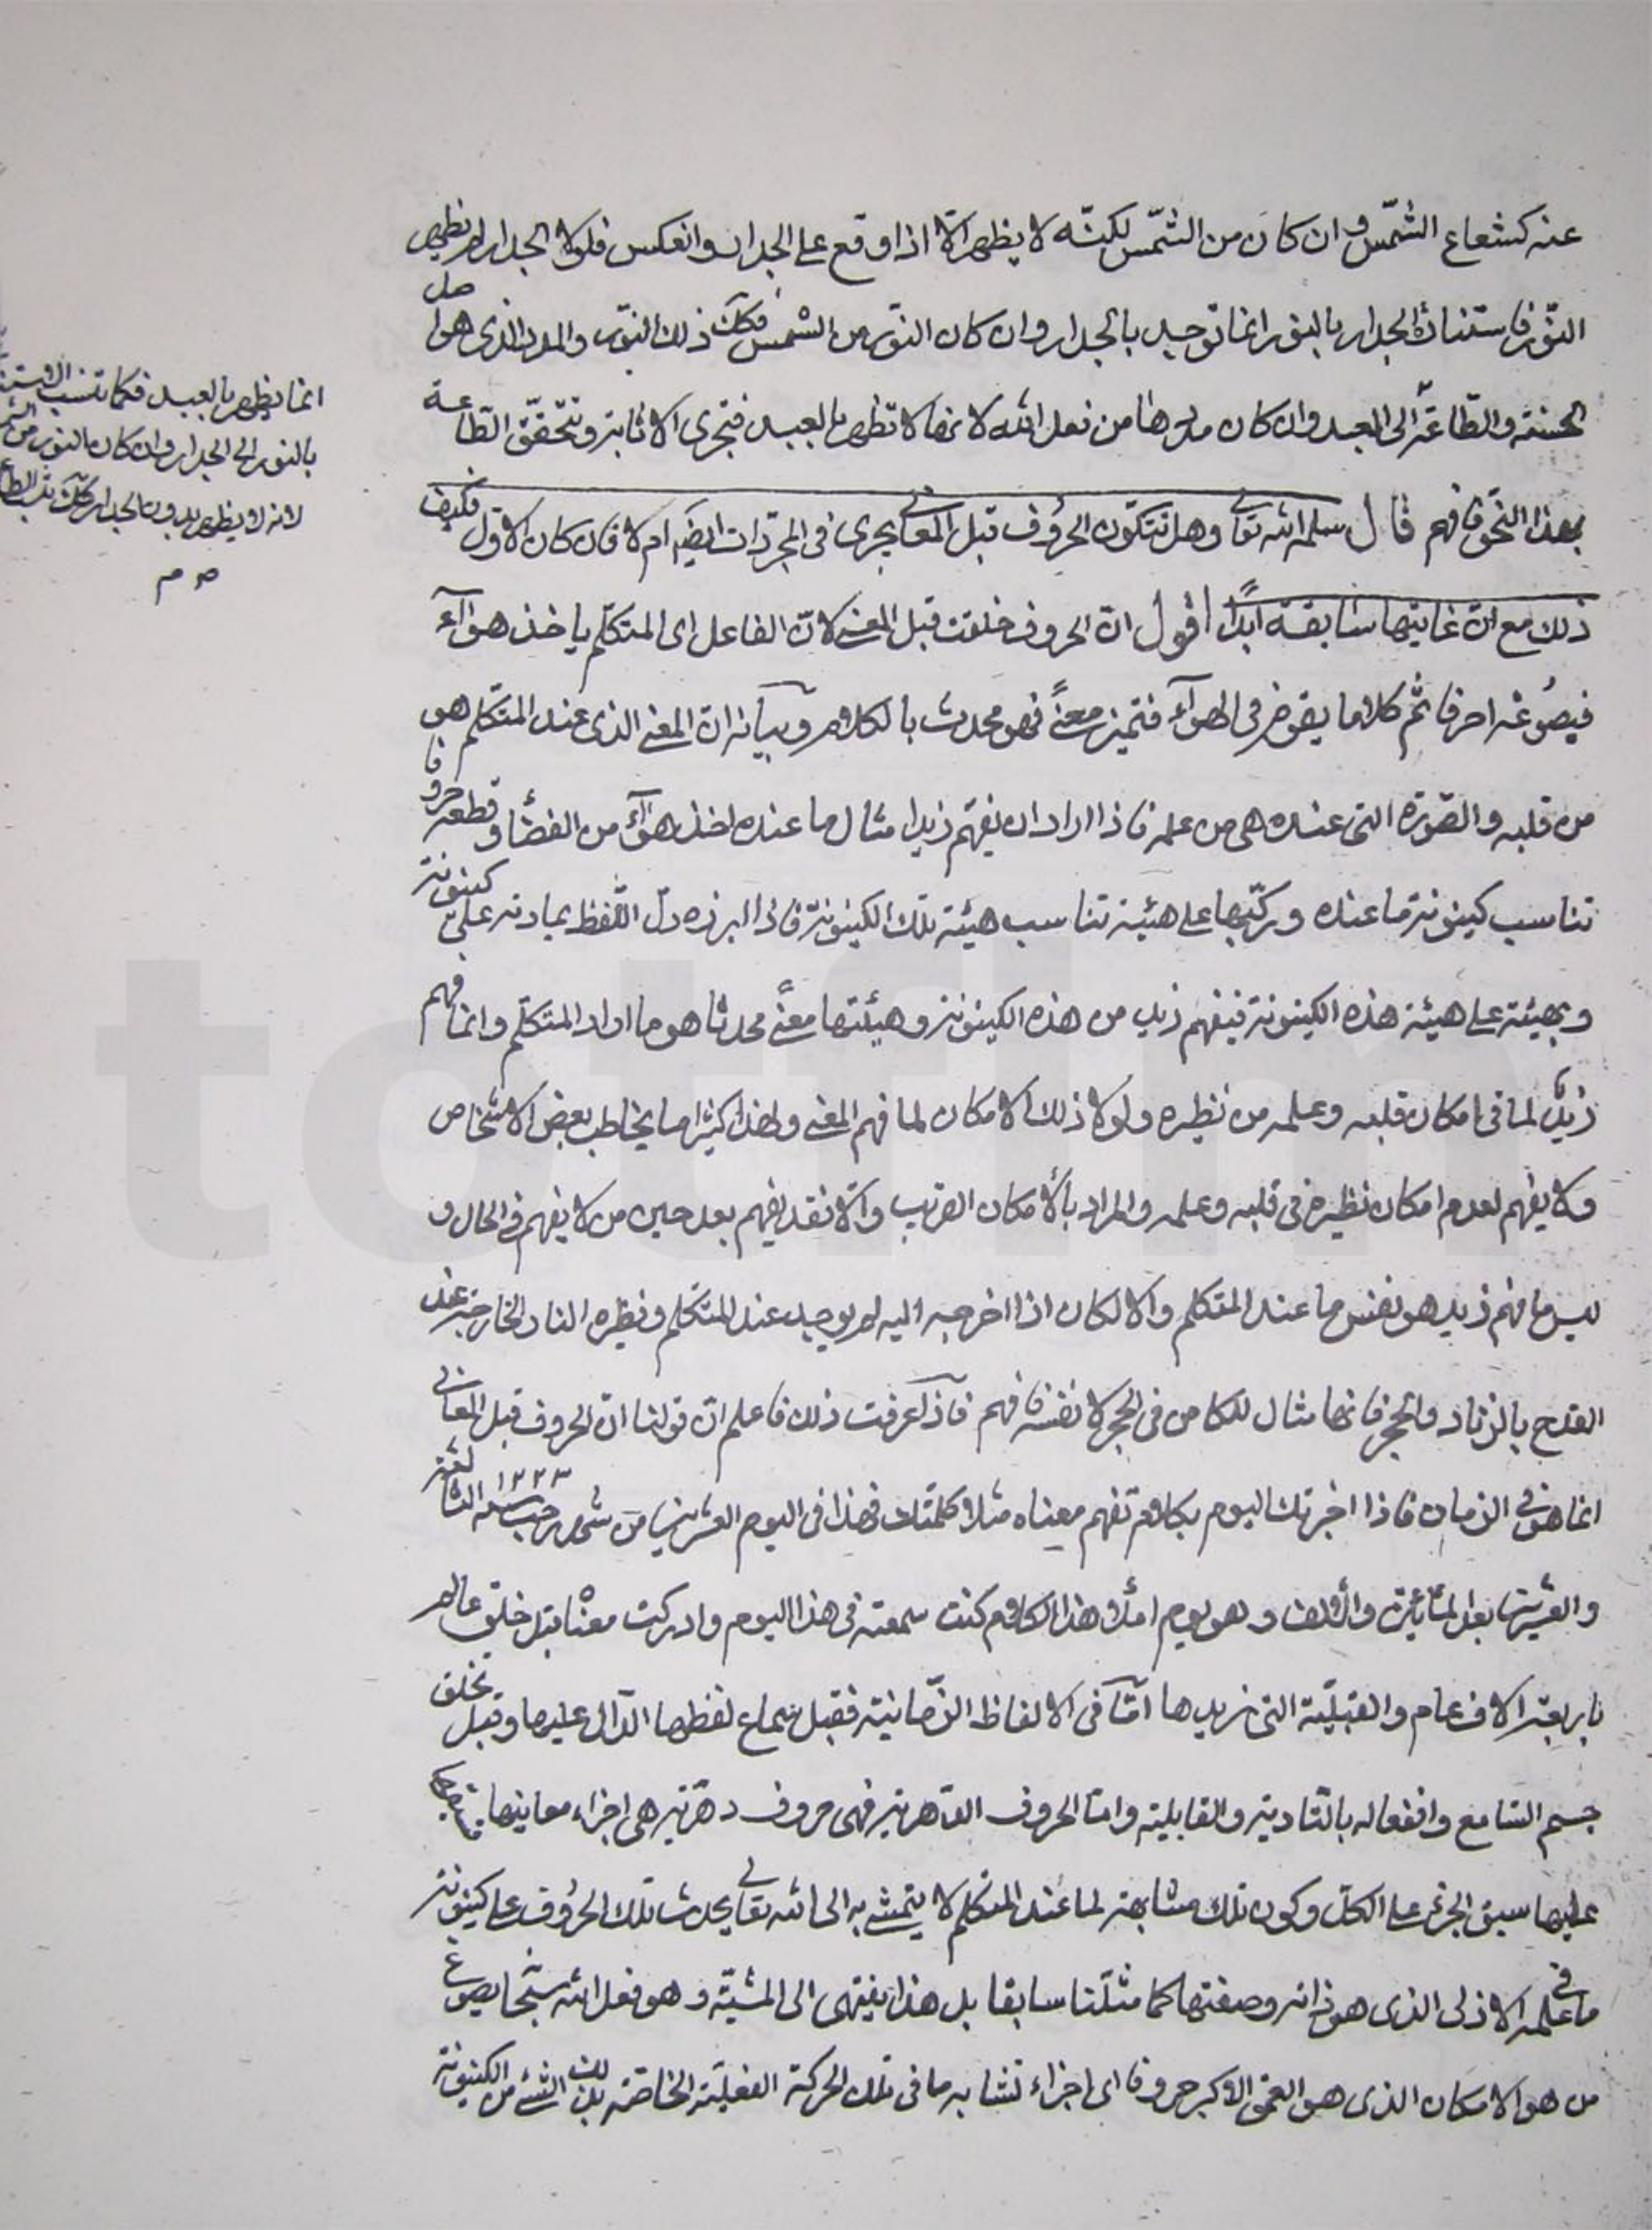 عنه كشعاع الشّمس وان كان من الشّمس لكنّه لا يظهر الّا اذا وقع على الجدار وانعكس فلولا الجدار لم يظهر
النّور فاستنارة الجدار بالنور انما توجد بالجدار وان كان النور من الشمس فكك ذلك النّور والمدد الذى هو اصل
الحسنة والطّاعة الى العبد وان كان مددها من فعل الله لانها لا تظهر الا بالعبد فتجرى الاثابة وتتحقّق الطّاعة
بهذا النّحو فافهم قال سلمه الله تعالى وهل تتكوّن الحروف قبل المعانى يجرى فى المجرّدات ايضا ام لا فان كان الاوّل فكيف
ذلك مع انّ غايتها سابقة ابدًا اقول انّ الحروف خلقت قبل المعنى لانّ الفاعل اى المتكلّم ياخذ هوآء
فيصوغه احرفا ثم كلاما يقرض فى الهوآء فتميز معنىً فهو محدث بالكلام وبيانه انّ المعنى الذى عند المتكلم هو
من قلبه والصّورة التى عنده هى من علمه فاذا اراد ان يفهّم زيدا مثال ما عنده اخذ هوآء من الفضاء وقطعه حروفا
تناسب كينونة ما عنده وركّبها على هيئة تناسب هيئة تلك الكينونة فاذا ابرزه دلّ اللّفظ بمادته على كينونته
وبهيئته على هيئة هذه الكينونة فيفهم زيد من هذه الكينونة وهيئتها معنىً محدثا هو ما اراد المتكلّم وانما فهم
زيدٌ لما فى امكان قلبه وعلمه من نظيره ولولا ذلك الامكان لما فهم المعنى ولهذا كثيرا ما يخاطب بعض الاشخاص
ولا يفهم لعدم امكان نظيره فى قلبه وعلمه والمراد بالامكان القريب والّا فقد يفهم بعد حين من لا يفهم فى الحال و
ليس ما فهم زيد هو نفس ما عند المتكلم والا لكان اذا اخرجه اليه لم يوجد عند المتكلم ونظيره النار الخارجة عند
القدح بالزناد والحجر فانها مثال للكامن فى الحجر لا نفسه فافهم فاذا عرفت ذلك فاعلم انّ قولنا انّ الحروف قبل المعانى
انما هو فى الزمان فاذا اخبرتك اليوم بكلام تفهم معناه مثلا كلمتك فهذا فى اليوم العشرين من شهر رجب سنة ١٢٢٣ الثالثة
والعشرين بعد المائتين والالف وهو يوم املاء هذا الكلام كنت سمعته فى هذا اليوم وادركت معناه قبل خلق عالم
باربعة الاف عام والقبليّة التى نريدها امّا فى الالفاظ الزّمانية فقبل سماع لفظها الدّال عليها وقبل تخلق
جسم السّامع وانفعاله بالتّادية والقابلية وامّا الحروف الدّهرية فهى حروف دهريّة هى اجزاء معاينها
عليها سبق الجزء على الكلّ وكون تلك مشابهة لما عند المتكلم لا يتمشّى به الى الله تعالى يحدث تلك الحروف على كينونة
ما فى علمه الازلى الذى هو ذاته وصفتها كما مثّلنا سابقا بل هذا ينتهى الى المشيّة وهو فعل الله سبحانه يصوغ
من هو الامكان الذى هو العمق الاكبر حروفا اى اجزاء تشابه ما فى تلك الحركة الفعليّة الخاصّة بذلك الشىء من الكينونة
انما يظهر بالعبد فكما تنسب الاستنـ
بالنور الى الجدار وان كان النور من الشـ
لانه لا يظهر بدون الجدار كك تنسب الطا
صح م